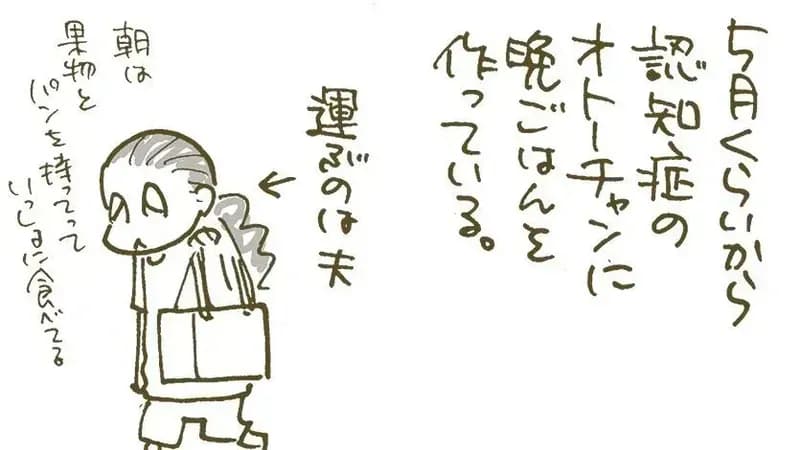 5月くらいから
認知症の
オトーチャンに
晩ごはんを
作っている。
運ぶのは夫
朝は
果物と
パンを持ってって
いっしょに食べてる